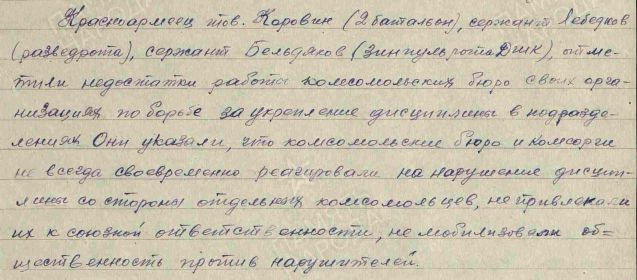 Красноармеец тов. Каровин (2 батальон), сержант Лебедков
(разведрота), сержант Бельдяков (зенпульрота ДШК), отме-
тили недостатки работы комсомольских бюро своих орга-
низациях по борьбе за укрепление дисциплины в подразде-
лениях Они указали, что комсомольские бюро и комсорги
не всегда своевременно реагировали на нарушение дисцип-
лины со стороны отдельных комсомольцев, не привлекали
их к союзной ответственности, не мобилизовали об=
щественность против нарушителей.